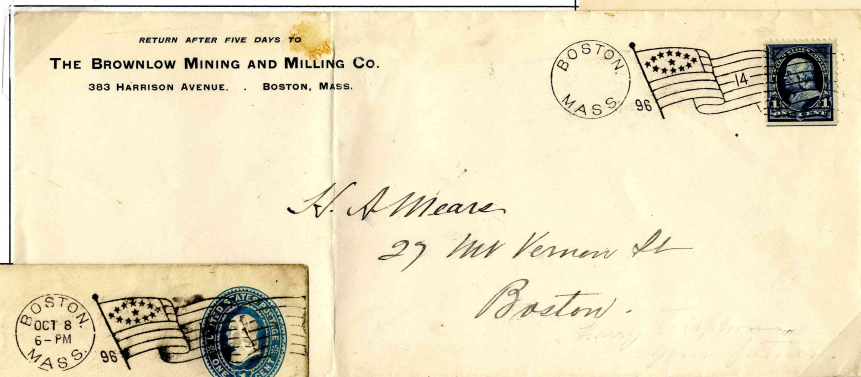 RETURN AFTER FIVE DAYS TO
THE BROWNLOW MINING AND MILLING CO.
383 HARRISON AVENUE, . BOSTON, MASS.
BOSTON,
MASS.
96
14
1 1
ONE CENT
H. A Mears
27 Mt Vernon St
Boston.
BOSTON,
OCT 8
6-PM
MASS.
96
UNITED STATES POSTAGE
ONE CENT